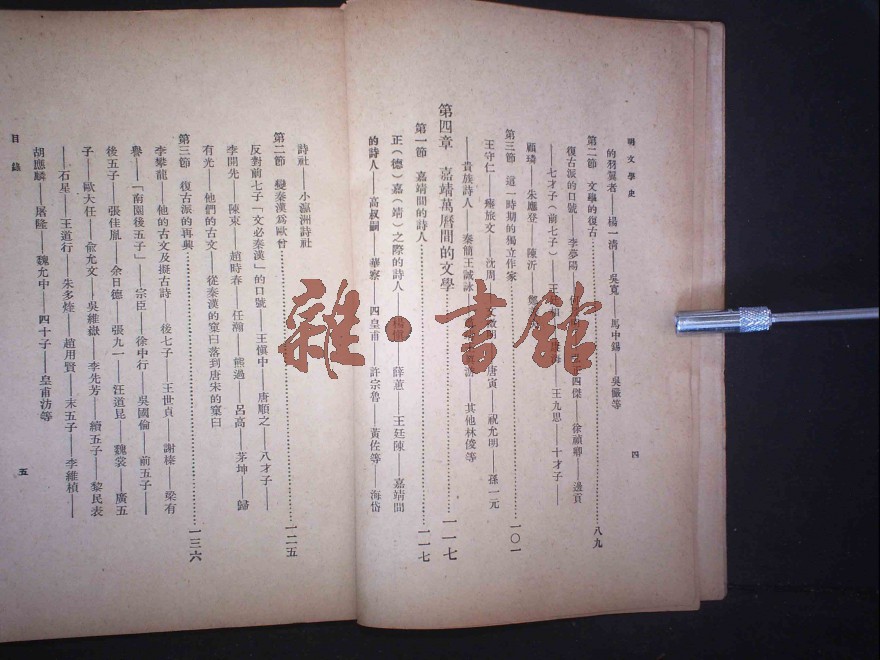 明文學史
四
的羽翼者——楊一清——吳寬——馬中錫——吳儼等
第二節 文學的復古……八九
復古派的口號——李夢陽 四傑——徐禎卿——邊貢
——七才子（前七子）—— 王九思——十才子——
顧璘——朱應登——陳沂——鄭
第三節 這一時期的獨立作家……一〇一
王守仁——瘞旅文——沈周——文徵明——唐寅——祝允明——孫一元
——貴族詩人——秦簡王誠泳 其他林俊等
第四章 嘉靖萬曆間的文學……一一七
第一節 嘉靖間的詩人……一一七
正（德）嘉（靖）之際的詩人——楊慎——薛蕙——王廷陳——嘉靖間
的詩人——高叔嗣——華察——四皇甫——許宗魯——黃佐等——海岱
詩社——小瀛洲詩社
第二節 變秦漢爲歐曾……一二五
反對前七子「文必秦漢」的口號——王愼中——唐順之——八才子——
李開先——陳東——趙時春——任瀚——熊過——呂高——茅坤——歸
有光——他們的古文——從秦漢的窠臼落到唐宋的窠臼
第三節 復古派的再興……一三六
李攀龍——他的古文及擬古詩——後七子——王世貞——謝榛——梁有
譽——「南園後五子」——宗臣——徐中行——吳國倫——前五子——
後五子——張佳胤——余日德——張九一——汪道昆——魏裳——廣五
子——歐大任——俞允文——吳維嶽——李先芳——續五子——黎民表
——石星——王道行——朱多煃——趙用賢——末五子——李維楨——
胡應麟——屠隆——魏允中——四十子——皇甫汸等
目錄
五
雜·書館